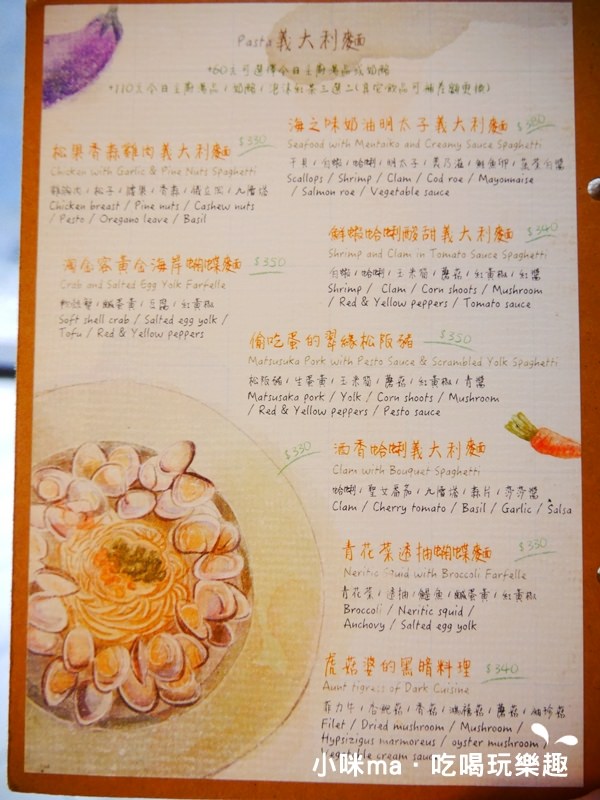 Pasta義大利麵
+60元可選擇今日主廚湯品或奶酪
+110元今日主廚湯品/奶酪/
海之味奶油明太子義大利麵 $380
Seafood with Mentaiko and Creamy Sauce Spaghetti
干貝/白蝦/蛤蜊/明太子/美乃滋/鮭魚卵/蔬菜白醬
Scallops / Shrimp / Clam / Cod roe / Mayonnaise
/ Salmon roe / Vegetable sauce
松果香蒜雞肉義大利麵 $330
Chicken with Garlic & Pine Nuts Spaghetti
雞胸肉/松子/腰果/青蒜/俄立岡/九層塔
Chicken breast / Pine nuts / Cashew nuts
/ Pesto / Oregano leave / Basil
鮮蝦蛤蜊酸甜義大利麵 $340
Shrimp and Clam in Tomato Sauce Spaghetti
白蝦/蛤蜊/玉米筍/蘑菇/紅黃椒/紅醬
Shrimp / Clam / Corn shoots / Mushroom
/ Red & Yellow peppers / Tomato sauce
淘金客黃金海岸蝴蝶麵 $350
Crab and Salted Egg Yolk Farfelle
軟殼蟹/鹹蛋黃/豆腐/紅黃椒
Soft shell crab / Salted egg yolk /
Tofu / Red & Yellow peppers
偷吃蛋的翠綠松阪豬 $350
Matsusuka Pork with Pesto Sauce & Scrambled Yolk Spaghetti
松阪豬/生蛋黃/玉米筍/蘑菇/紅黃椒/青醬
Matsusaka pork / Yolk / Corn shoots / Mushroom
/ Red & Yellow peppers / Pesto sauce
酒香蛤蜊義大利麵 $330
Clam with Bouquet Spaghetti
蛤蜊/聖女番茄/九層塔/蒜片/莎莎醬
Clam / Cherry tomato / Basil / Garlic / Salsa
青花菜透抽蝴蝶麵 $330
Neritic Squid with Broccoli Farfelle
青花菜/透抽/鯷魚/鹹蛋黃/紅黃椒
Broccoli / Neritic squid /
Anchovy / Salted egg yolk
虎菇婆的黑暗料理 $340
Aunt tigress of Dark Cuisine
菲力牛/杏鮑菇/香菇/鴻禧菇/蘑菇/袖珍菇
Filet / Dried mushroom / Mushroom /
Hypsizigus marmoreus / oyster mushroom /
Vegetable cream sauce
小咪ma‧吃喝玩樂趣